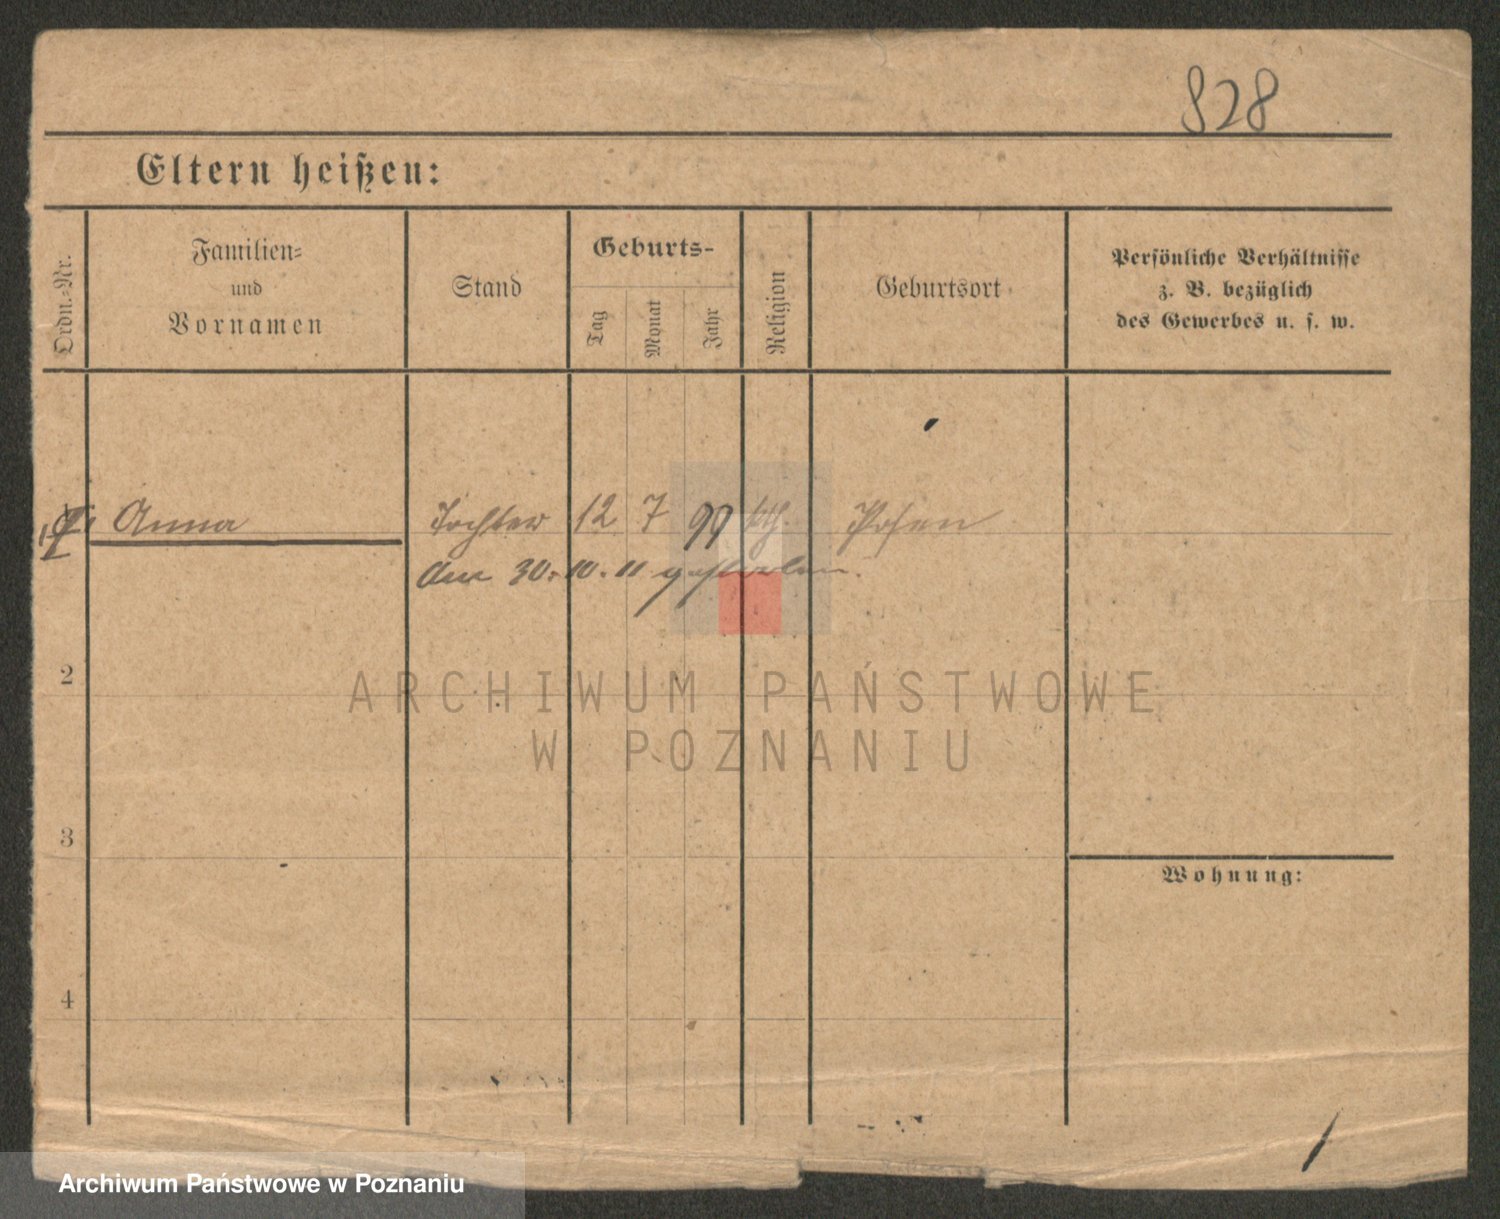 828
Eltern heißen:
Ordn.-Nr.
Familien-
und
Vornamen
Stand
Geburts-
Tag
Monat
Jahr
Religion
Geburtsort
Persönliche Verhältnisse
z. B. bezüglich
des Gewerbes u. s. w.
Anna Tochter 12 7 99 kth. Posen
Am 30.10.11 gestorben.
2
ARCHIWUM PAŃSTWOWE
W POZNANIU
3
Wohnung:
4
Archiwum Państwowe w Poznaniu